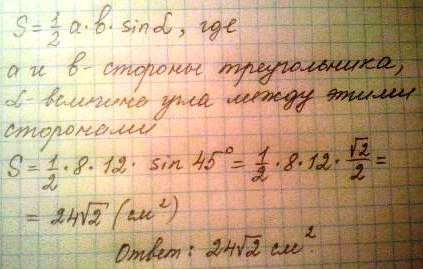 S = 1/2 a · в · sin α, где
а и в - стороны треугольника,
α - величина угла между этими
сторонами
S = 1/2 · 8 · 12 · sin 45° = 1/2 · 8 · 12 · √2/2 =
= 24√2 (см²)
Ответ: 24√2 см².